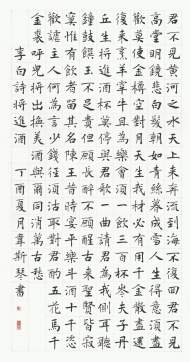 君不見黃河之水天上來奔流到海不復回君不見
高堂明鏡悲白髮朝如青絲暮成雪人生得意須盡
歡莫使金樽空對月天生我材必有用千金散盡還
復來烹羊宰牛且為樂會須一飲三百杯岑夫子丹
丘生將進酒杯莫停與君歌一曲請君為我側耳聽
鐘鼓饌玉不足貴但願長醉不願醒古來聖賢皆寂
寞惟有飲者留其名陳王昔時宴平樂斗酒十千恣
歡謔主人何為言少錢徑須沽取對君酌五花馬千
金裘呼兒將出換美酒與爾同消萬古愁
李白詩將進酒 丁酉夏月韋斯琴書